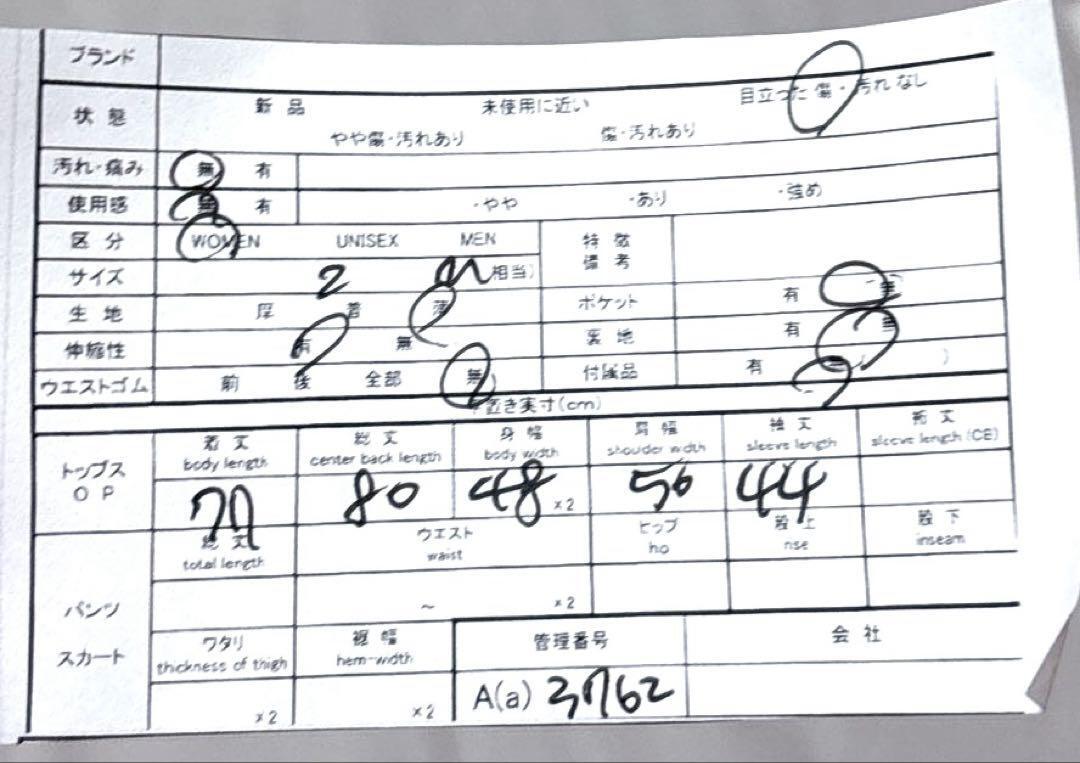 ブランド
状態 新品 未使用に近い 目立った傷・汚れなし
やや傷・汚れあり 傷・汚れあり
汚れ・痛み 無 有
使用感 有 ・やや ・あり ・強め
区分 WOMEN UNISEX MEN 特徴
備考
サイズ 2 相当)
生地 厚 普 薄 ポケット 有 無
伸縮性 有 無 裏地 有 無
ウエストゴム 前 後 全部 無 付属品 有 )
平置き実寸(cm)
トップス
OP
着丈 総丈 身幅 肩幅 袖丈 裄丈
body length center back length body width shouder width sleeve length sleeve length (CE)
80 48 ×2 56 44
総丈 ウエスト ヒップ 股上 股下
total length waist rise inseam
パンツ
スカート
~ ×2
ワタリ 裾幅 管理番号 会社
thickness of thigh hem-width
×2 ×2 A(a) 3762